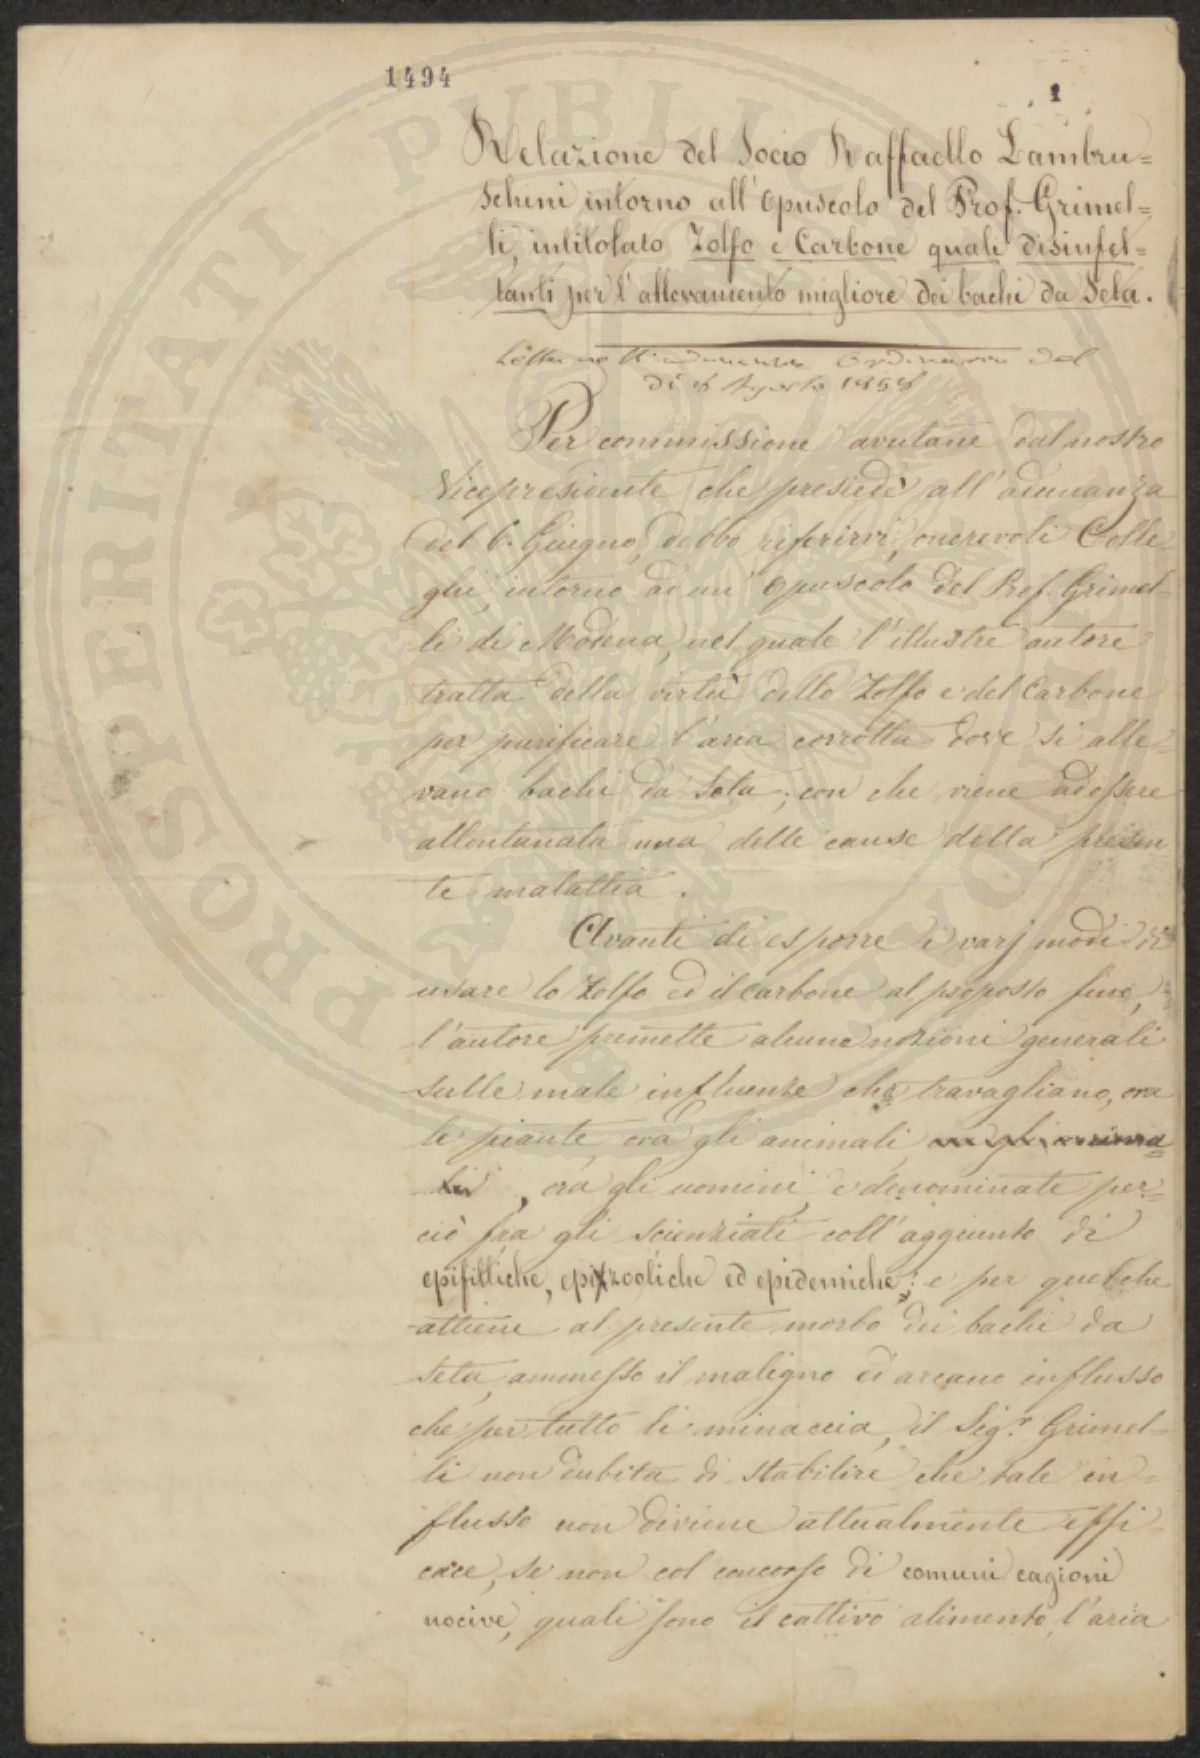 1494
1
Relazione del Socio Raffaello Lambru=
schini intorno all'opuscolo del Prof. Grimel=
li, intitolato Zolfo e Carbone quali disinfet=
tanti per l'allevamento migliore dei bachi da Seta.
Letta nell'adunanza Ordinaria del
dì 8 Agosto 1858
Per commissione avutane dal nostro
Vicepresidente che presiedè all'adunanza
del 6. Giugno, debbo riferirvi, onorevoli Colle-
ghi, intorno ad un opuscolo del Prof. Grimel-
li di Modena, nel quale l'illustre autore
tratta della virtù dello Zolfo e del Carbone
per purificare l'aria corrotta dove si alle-
vano bachi da Seta; con che viene ad essere
allontanata una delle cause della presen
te malattia.
Avanti di esporre i varj modi di
usare lo Zolfo ed il carbone al proposto fine,
l'autore premette alcune nozioni generali
sulle male influenze che travagliano, ora
le piante, ora gli animali, ora gli anima=
li, ora gli uomini, e denominate per=
ciò fra gli scienziati coll'aggiunto di
epifitiche, epizootiche ed epidemiche; e per quel che
attiene al presente morbo dei bachi da
seta, ammesso il maligno ed arcano influsso
che per tutto li minaccia, il Sig.r Grimel=
li non dubita di stabilire che tale in=
flusso non diviene attualmente effi
cace, se non col concorso di comuni cagioni
nocive, quali sono il cattivo alimento, l'aria
PROSPERITATI PUBLICAE